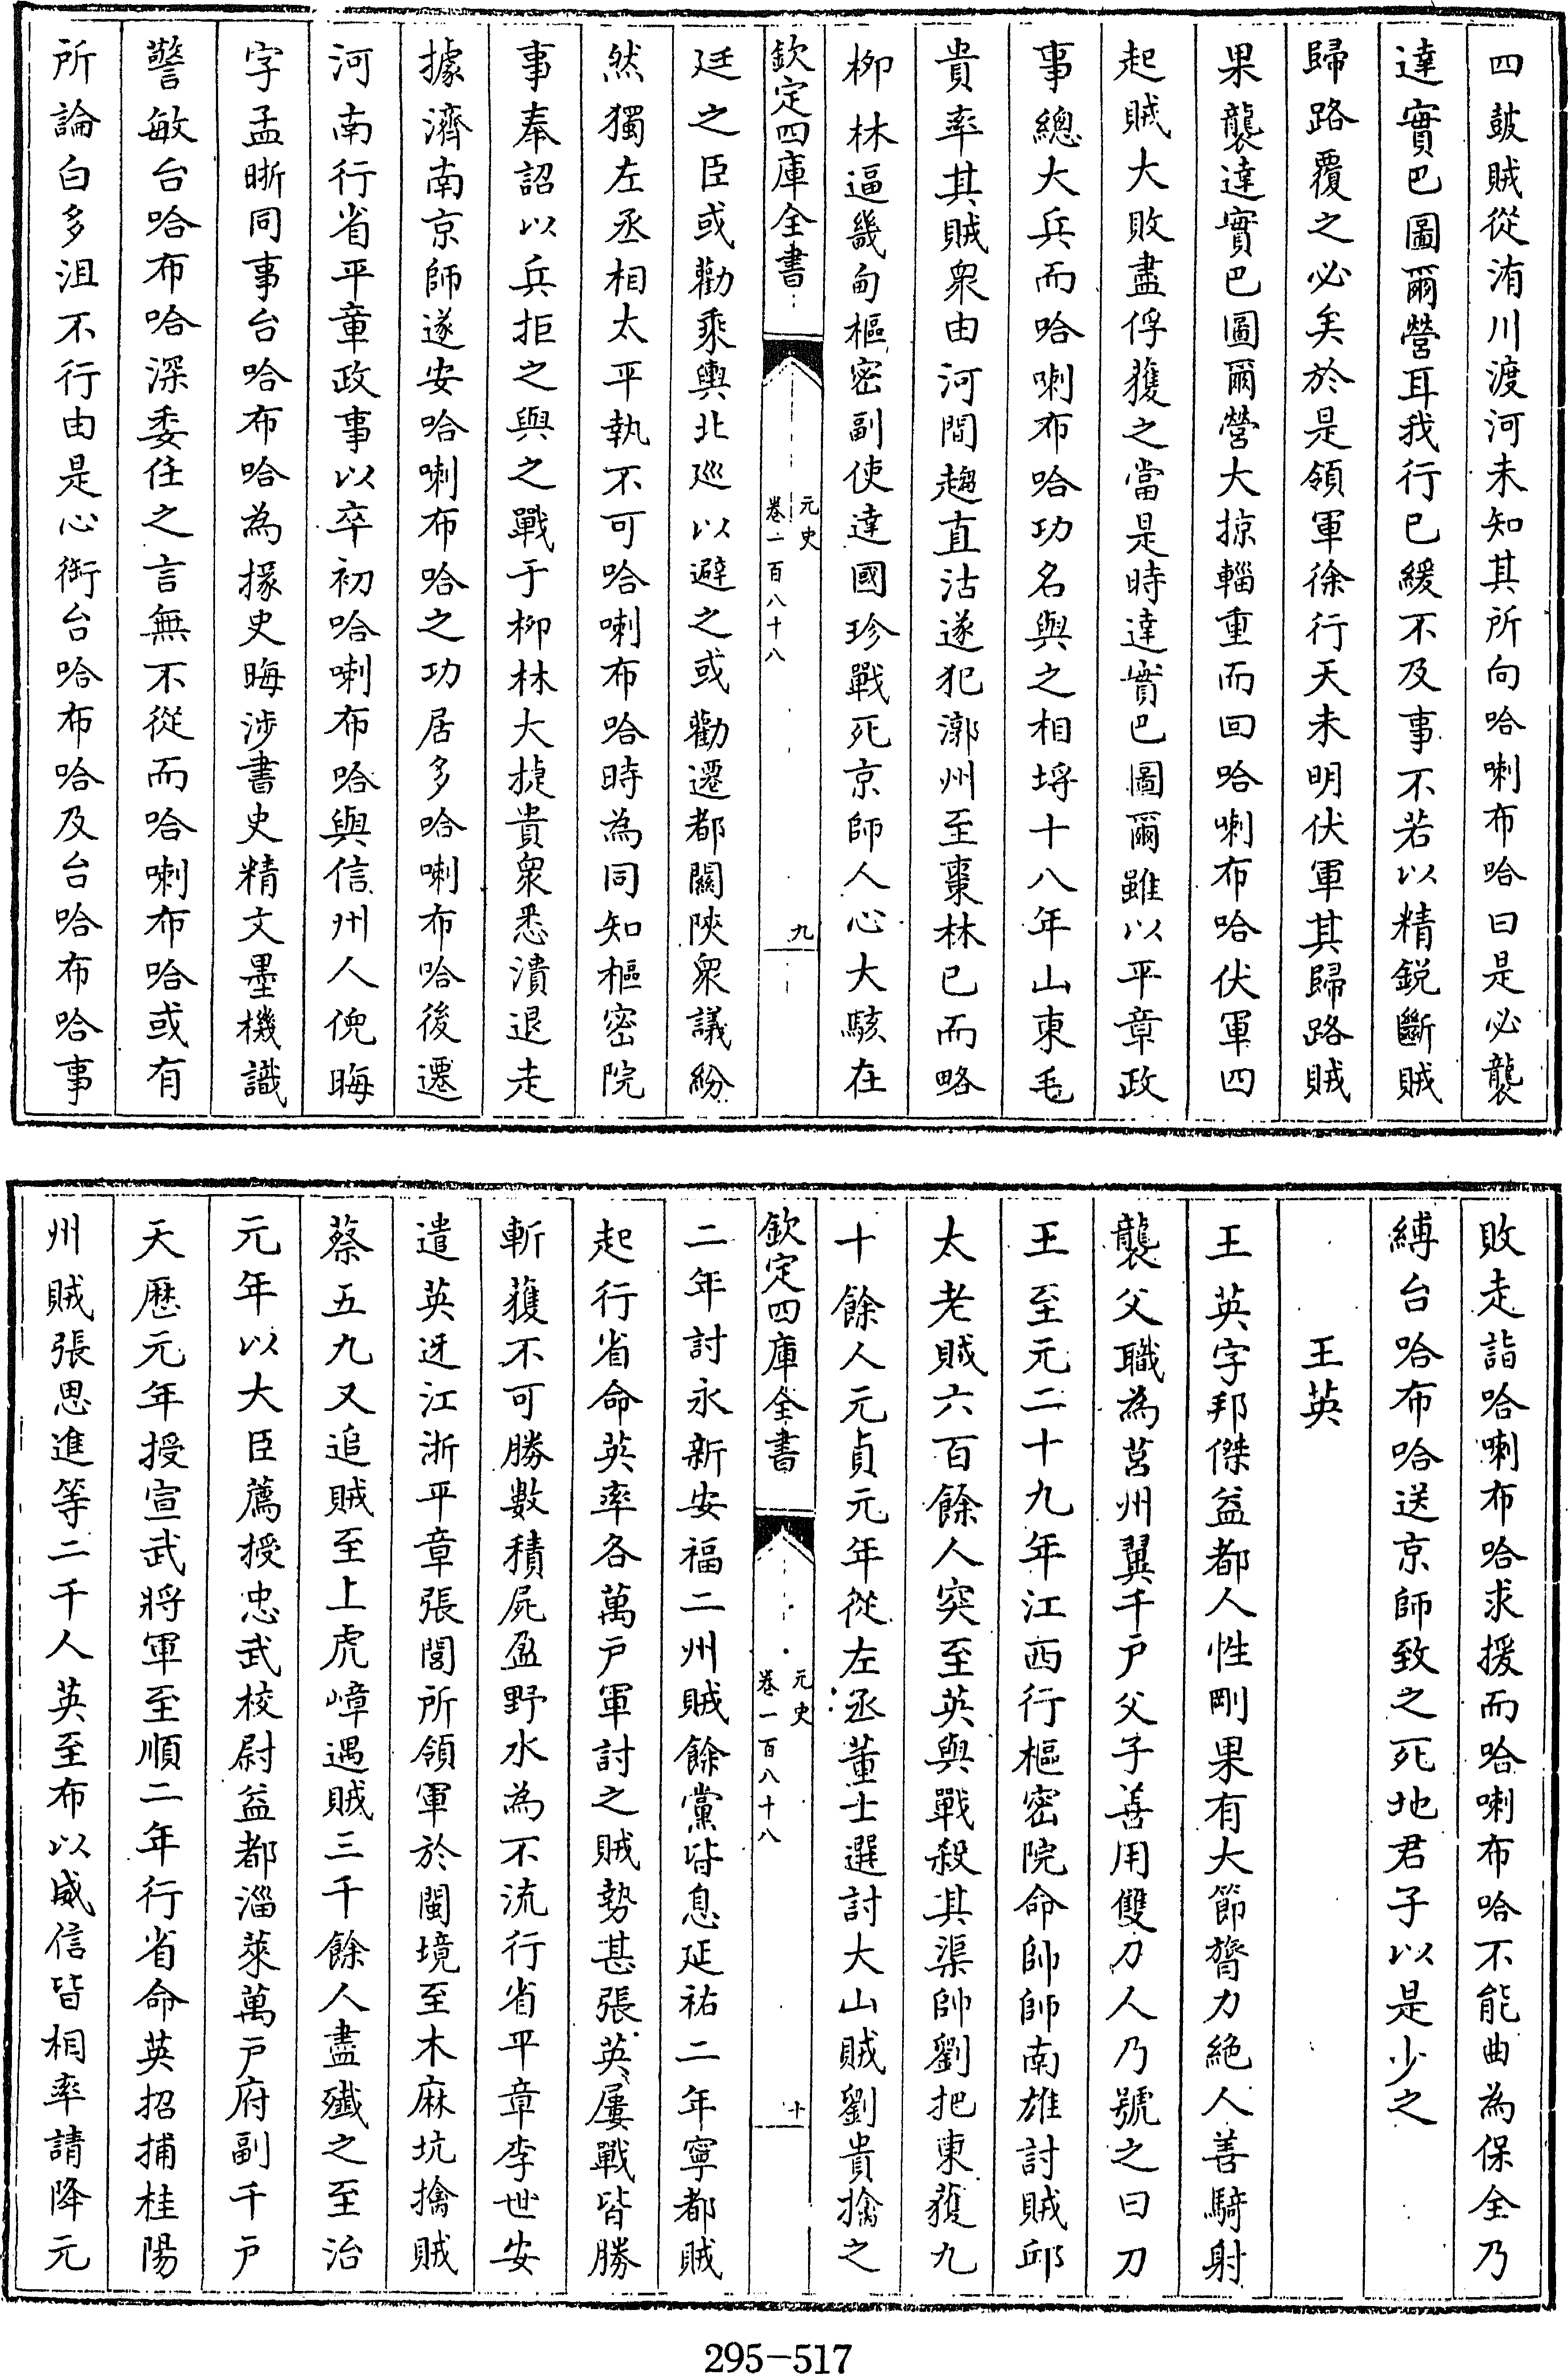 四鼓賊從洧川渡河未知其所向哈喇布哈曰是必襲
達實巴圖爾營耳我行已緩不及事不若以精鋭斷賊
歸路覆之必矣於是領軍徐行天未明伏軍其歸路賊
果襲達實巴圖爾營大掠輜重而回哈喇布哈伏軍四
起賊大敗盡俘獲之當是時達實巴圖爾雖以平章政
事總大兵而哈喇布哈功名與之相埒十八年山東毛
貴率其賊衆由河間趨直沽遂犯漷州至棗林已而略
柳林逼畿甸樞密副使達國珍戰死京師人心大駭在
欽定四庫全書
元史
卷一百八十八
九
廷之臣或勸乗輿北廵以避之或勸遷都關陜衆議紛
然獨左丞相太平執不可哈喇布哈時為同知樞密院
事奉詔以兵拒之與之戰于柳林大㨗貴衆悉潰退走
據濟南京師遂安哈喇布哈之功居多哈喇布哈後遷
河南行省平章政事以卒初哈喇布哈與信州人倪晦
字孟晣同事台哈布哈為掾史晦涉書史精文墨機識
警敏台哈布哈深委任之言無不從而哈喇布哈或有
所論白多沮不行由是心銜台哈布哈及台哈布哈事
敗走詣哈喇布哈求援而哈喇布哈不能曲為保全乃
縛台哈布哈送京師致之死地君子以是少之
王英
王英字邦傑益都人性剛果有大節膂力絶人善騎射
襲父職為莒州翼千户父子善用雙刀人乃號之曰刀
王至元二十九年江西行樞密院命帥師南雄討賊邱
太老賊六百餘人突至英與戰殺其渠帥劉把東獲九
十餘人元貞元年從左丞董士選討大山賊劉貴擒之
欽定四庫全書
元史
卷一百八十八
十
二年討永新安福二州賊餘黨皆息延祐二年寧都賊
起行省命英率各萬户軍討之賊勢甚張英屢戰皆勝
斬獲不可勝數積屍盈野水為不流行省平章李世安
遣英迓江浙平章張閭所領軍於閩境至木麻坑擒賊
蔡五九又追賊至上虎嶂遇賊三千餘人盡殱之至治
元年以大臣薦授忠武校尉益都淄萊萬户府副千户
天厯元年授宣武將軍至順二年行省命英招捕桂陽
州賊張思進等二千人英至布以威信皆相率請降元
295-517